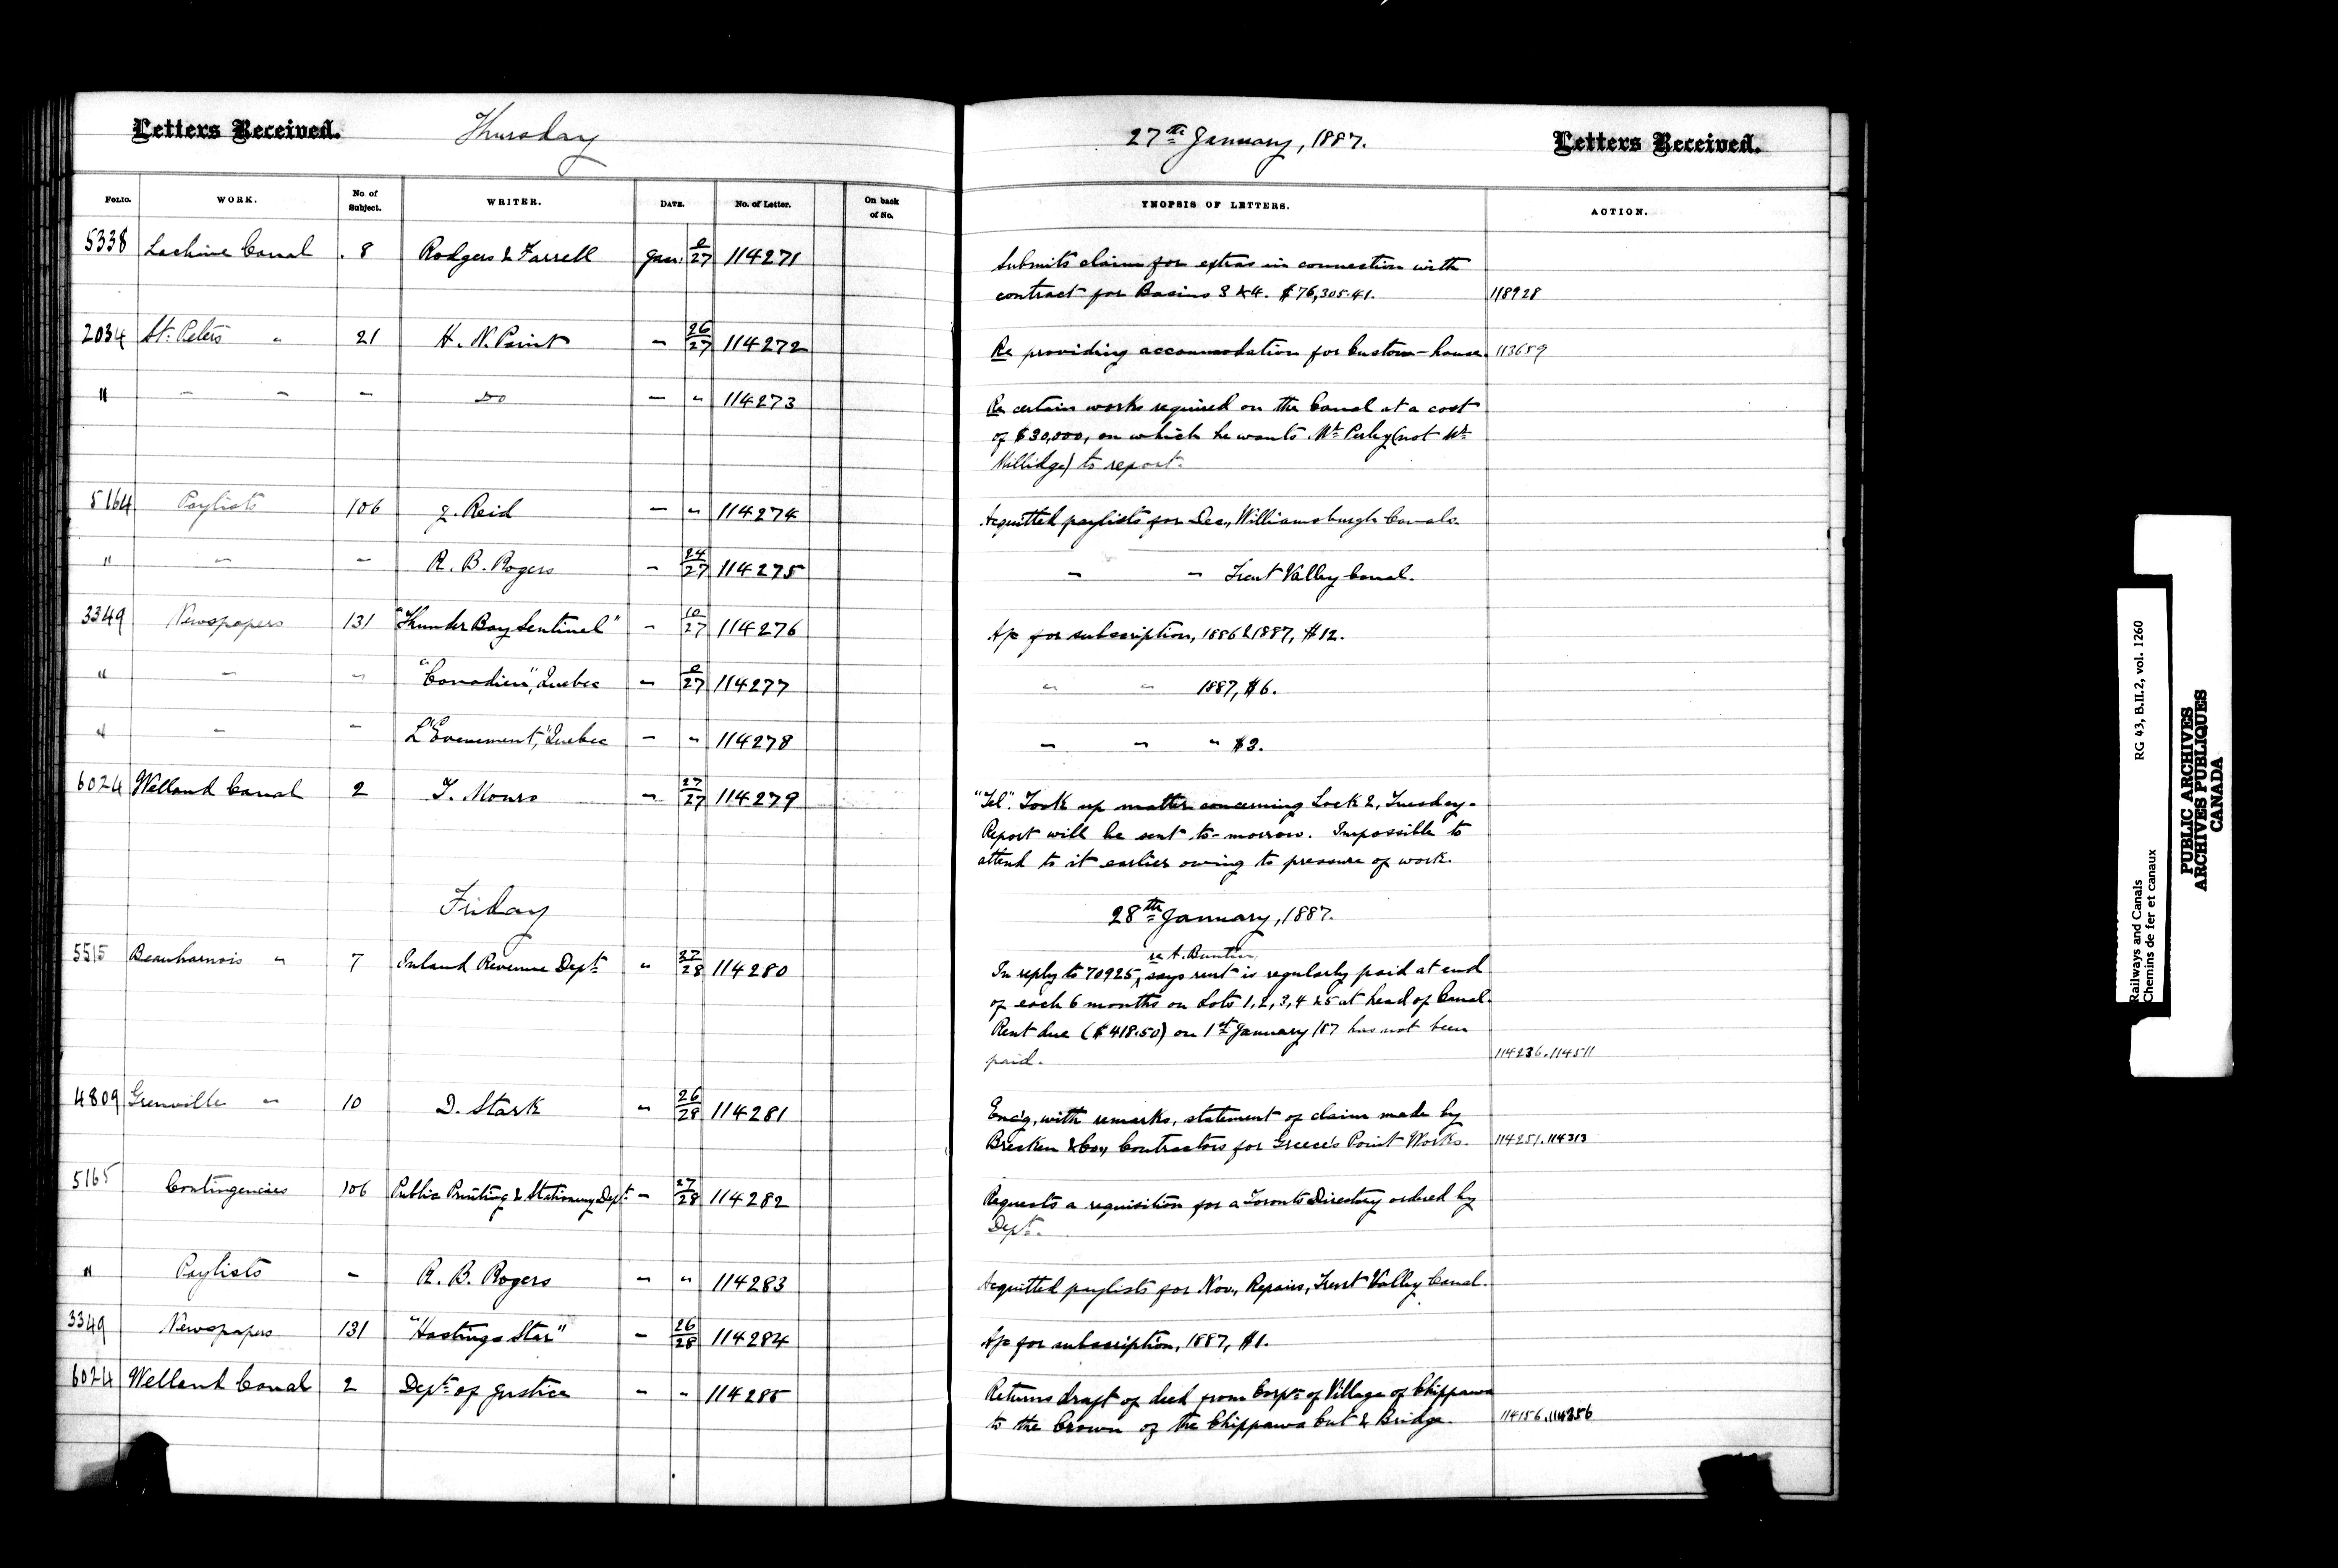 Letters Received. Thursday 27th January, 1887. Letters Received.
FOLIO. WORK. No of Subject. WRITER. DATE. No. of Letter. On back of No. YNOPSIS OF LETTERS. ACTION.
5338 Lachine Canal . 8 Rodgers & Farrell Jan. 0/27 114271 Submits claim for extras in connection with
contract for Basins 3 & 4. $76,305.41. 118928
2034 St. Peters " 21 H. N. Paint " 26/27 114272 Re providing accommodation for Custom-house. 113659
" " " " Do " " 114273 Re certain works required on the Canal at a cost
of $30,000, on which he wants Mr. Perley (not Mr.
Millidge) to report.
5164 Paylists 106 J. Reid " " 114274 Acquitted paylists for Dec., Williamsburgh Canals.
" " " R. B. Rogers " 24/27 114275 " " Trent Valley Canal.
3349 Newspapers 131 "Thunder Bay Sentinel" " 10/27 114276 A/c for subscription, 1886 & 1887, $12.
" " " "Canadien", Quebec " 0/27 114277 " " 1887, $6.
" " " L'"Evenement", Quebec " " 114278 " " " $3.
6024 Welland Canal 2 T. Monro " 27/27 114279 "Tel". Took up matter concerning Lock 2, Tuesday.
Report will be sent to-morrow. Impossible to
attend to it earlier owing to pressure of work.
Friday 28th January, 1887.
5515 Beauharnois " 7 Inland Revenue Dept. " 27/28 114280 In reply to 70925, re A. Buntin, says rent is regularly paid at end
of each 6 months on Lots 1, 2, 3, 4 & 5 at head of Canal.
Rent due ($418.50) on 1st January /87 has not been
paid. 114236.114511
4809 Grenville " 10 D. Stark " 26/28 114281 Enc'g, with remarks, statement of claim made by
Brecken & Co., Contractors for Greece's Point Works. 114251.114313
5165 Contingencies 106 Public Printing & Stationery Dept. " 27/28 114282 Requests a requisition for a Toronto Directory ordered by
Dept.
" Paylists " R. B. Rogers " " 114283 Acquitted paylists for Nov., Repairs, Trent Valley Canal.
3349 Newspapers 131 "Hastings Star" " 26/28 114284 A/c for subscription, 1887, $1.
6024 Welland Canal 2 Dept. of Justice " " 114285 Returns draft of deed from Corpn. of Village of Chippawa
to the Crown of the Chippawa Cut & Bridge. 114156.114356
Railways and Canals RG 43, B.II.2, vol. 1260
Chemins de fer et canaux
PUBLIC ARCHIVES
ARCHIVES PUBLIQUES
CANADA